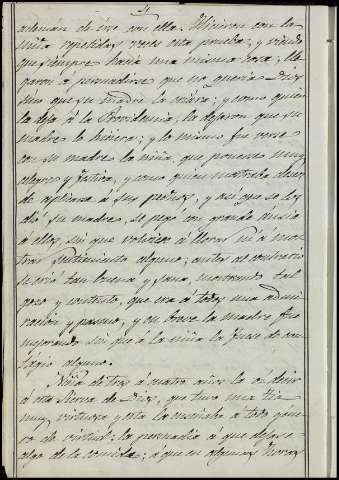 4
ademán de irse con ella. Hicieron con la
niña repetidas veces esta prueba; y viendo
que siempre hacia una misma cosa, lle-
garon á persuadirse que no queria Dios
sino que su madre la criára; y como quien
la deja á la Providencia, la dejaron que su
madre lo hiciera; y lo mismo fue verse
con su madre la niña, que ponerse muy
alegre y festiva, y como quien mostraba deseo
de aplicarse á sus pechos; y así que se los
dió su madre, se pegó con grande ánsia
á ellos, sin que volviese á llorar ni á mos-
trar sentimiento alguno; antes al contrario
se crió tan buena y sana, mostrando tal
gozo y contento, que era á todos una admi-
racion y pasmo; y en breve la madre fue
mejorando sin que á la niña la fuese de con-
tágio alguno.
Niña de tres á cuatro años la oí decir
á esta Sierva de Dios, que tuvo una tia
muy virtuosa y esta la enseñaba á todo géne-
ro de virtud: la persuadia á que dejase
algo de la comida; á que en algunas horas